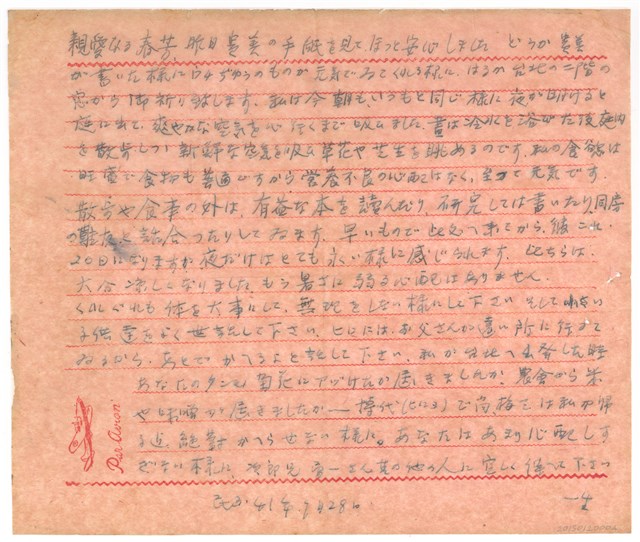 親愛なる春芳、昨日貴美の手紙を見て、ほっと安心しました どうか貴美
が書いた様に口々ぢゆうのものが元気でゐてくれる様に、はるか台地の二階の
窓から御祈り致します。私は今朝も、いつもと同じ様に夜が明けると
庭に出て、爽やかな空気を心行くまで吸ひました、昼は冷水を浴びた後庭内
を散歩しつつ新鮮な空気を吸ひ草花や芝生を眺めるのです、私の食慾は
旺盛で食物も普通ですから営養不良の心配はなく、至って元気です。
散歩や食事の外は、有益な本を読んだり、研究しては書いたり、同房
の難友と話合ったりしてゐます、早いもので此処へ来てから、彼これ
20日になりますが夜だけはとても永い様に感じられます、此ちらは
大分涼しくなりました もう暑さに弱る心配はありません、
くれぐれも体を大事にして、無理をしない様にして下さい そして小さい
子供達をよく世話して下さい、ヒロには、お父さんが遠い所に行って
ゐるから、あとでかへるよと話して下さい、私が台北へ出発した時
あなたのタンも菊花にアヅけたが届きましたか、農会から米
や味噌が届きましたか
で尚梅さは私が帰
る迄、絶対かへらせない様に。あなたはあまり心配しす
ぎない様に、次郎兄 貴一さん其の他の人に宜しく伝へて下さい
Par Avion
民国41年9月28日
一生